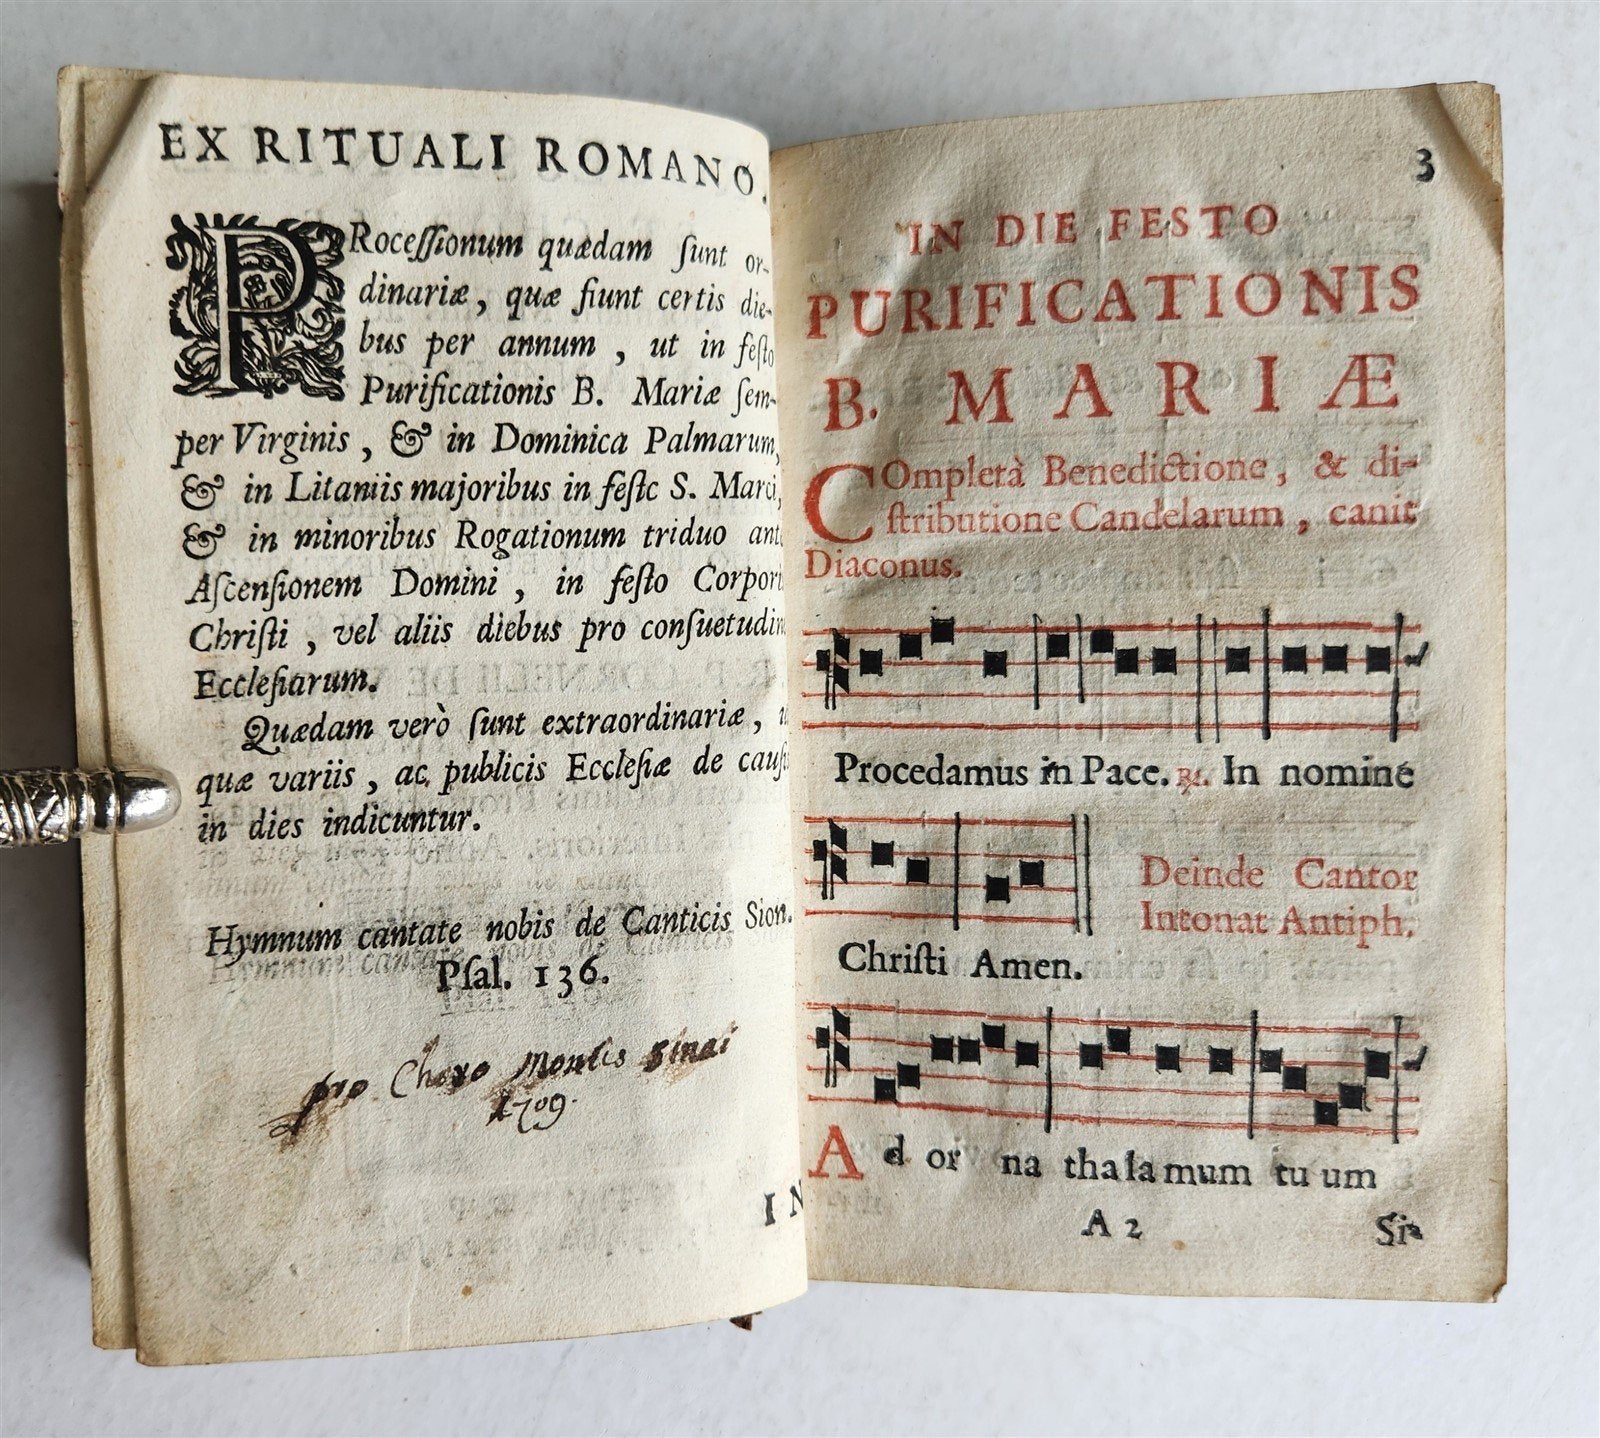 EX RITUALI ROMANO.
PRocessionum quædam sunt or-
dinariæ, quæ fiunt certis die-
bus per annum, ut in festo
Purificationis B. Mariæ sem-
per Virginis, & in Dominica Palmarum,
& in Litaniis majoribus in festo S. Marci,
& in minoribus Rogationum triduo ante
Ascensionem Domini, in festo Corporis
Christi, vel aliis diebus pro consuetudine
Ecclesiarum.
Quædam verò sunt extraordinariæ, ut
quæ variis, ac publicis Ecclesiæ de causis
in dies indicuntur.
Hymnum cantate nobis de Canticis Sion.
Psal. 136.
pro Choro Montis Sinai
1709.
IN
3
IN DIE FESTO
PURIFICATIONIS
B. MARIÆ
COmpletà Benedictione, & di-
stributione Candelarum, canit
Diaconus.
Procedamus in Pace. ℟. In nomine
Deinde Cantor
Intonat Antiph.
Christi Amen.
Ad or na tha la mum tu um
A 2
Si-